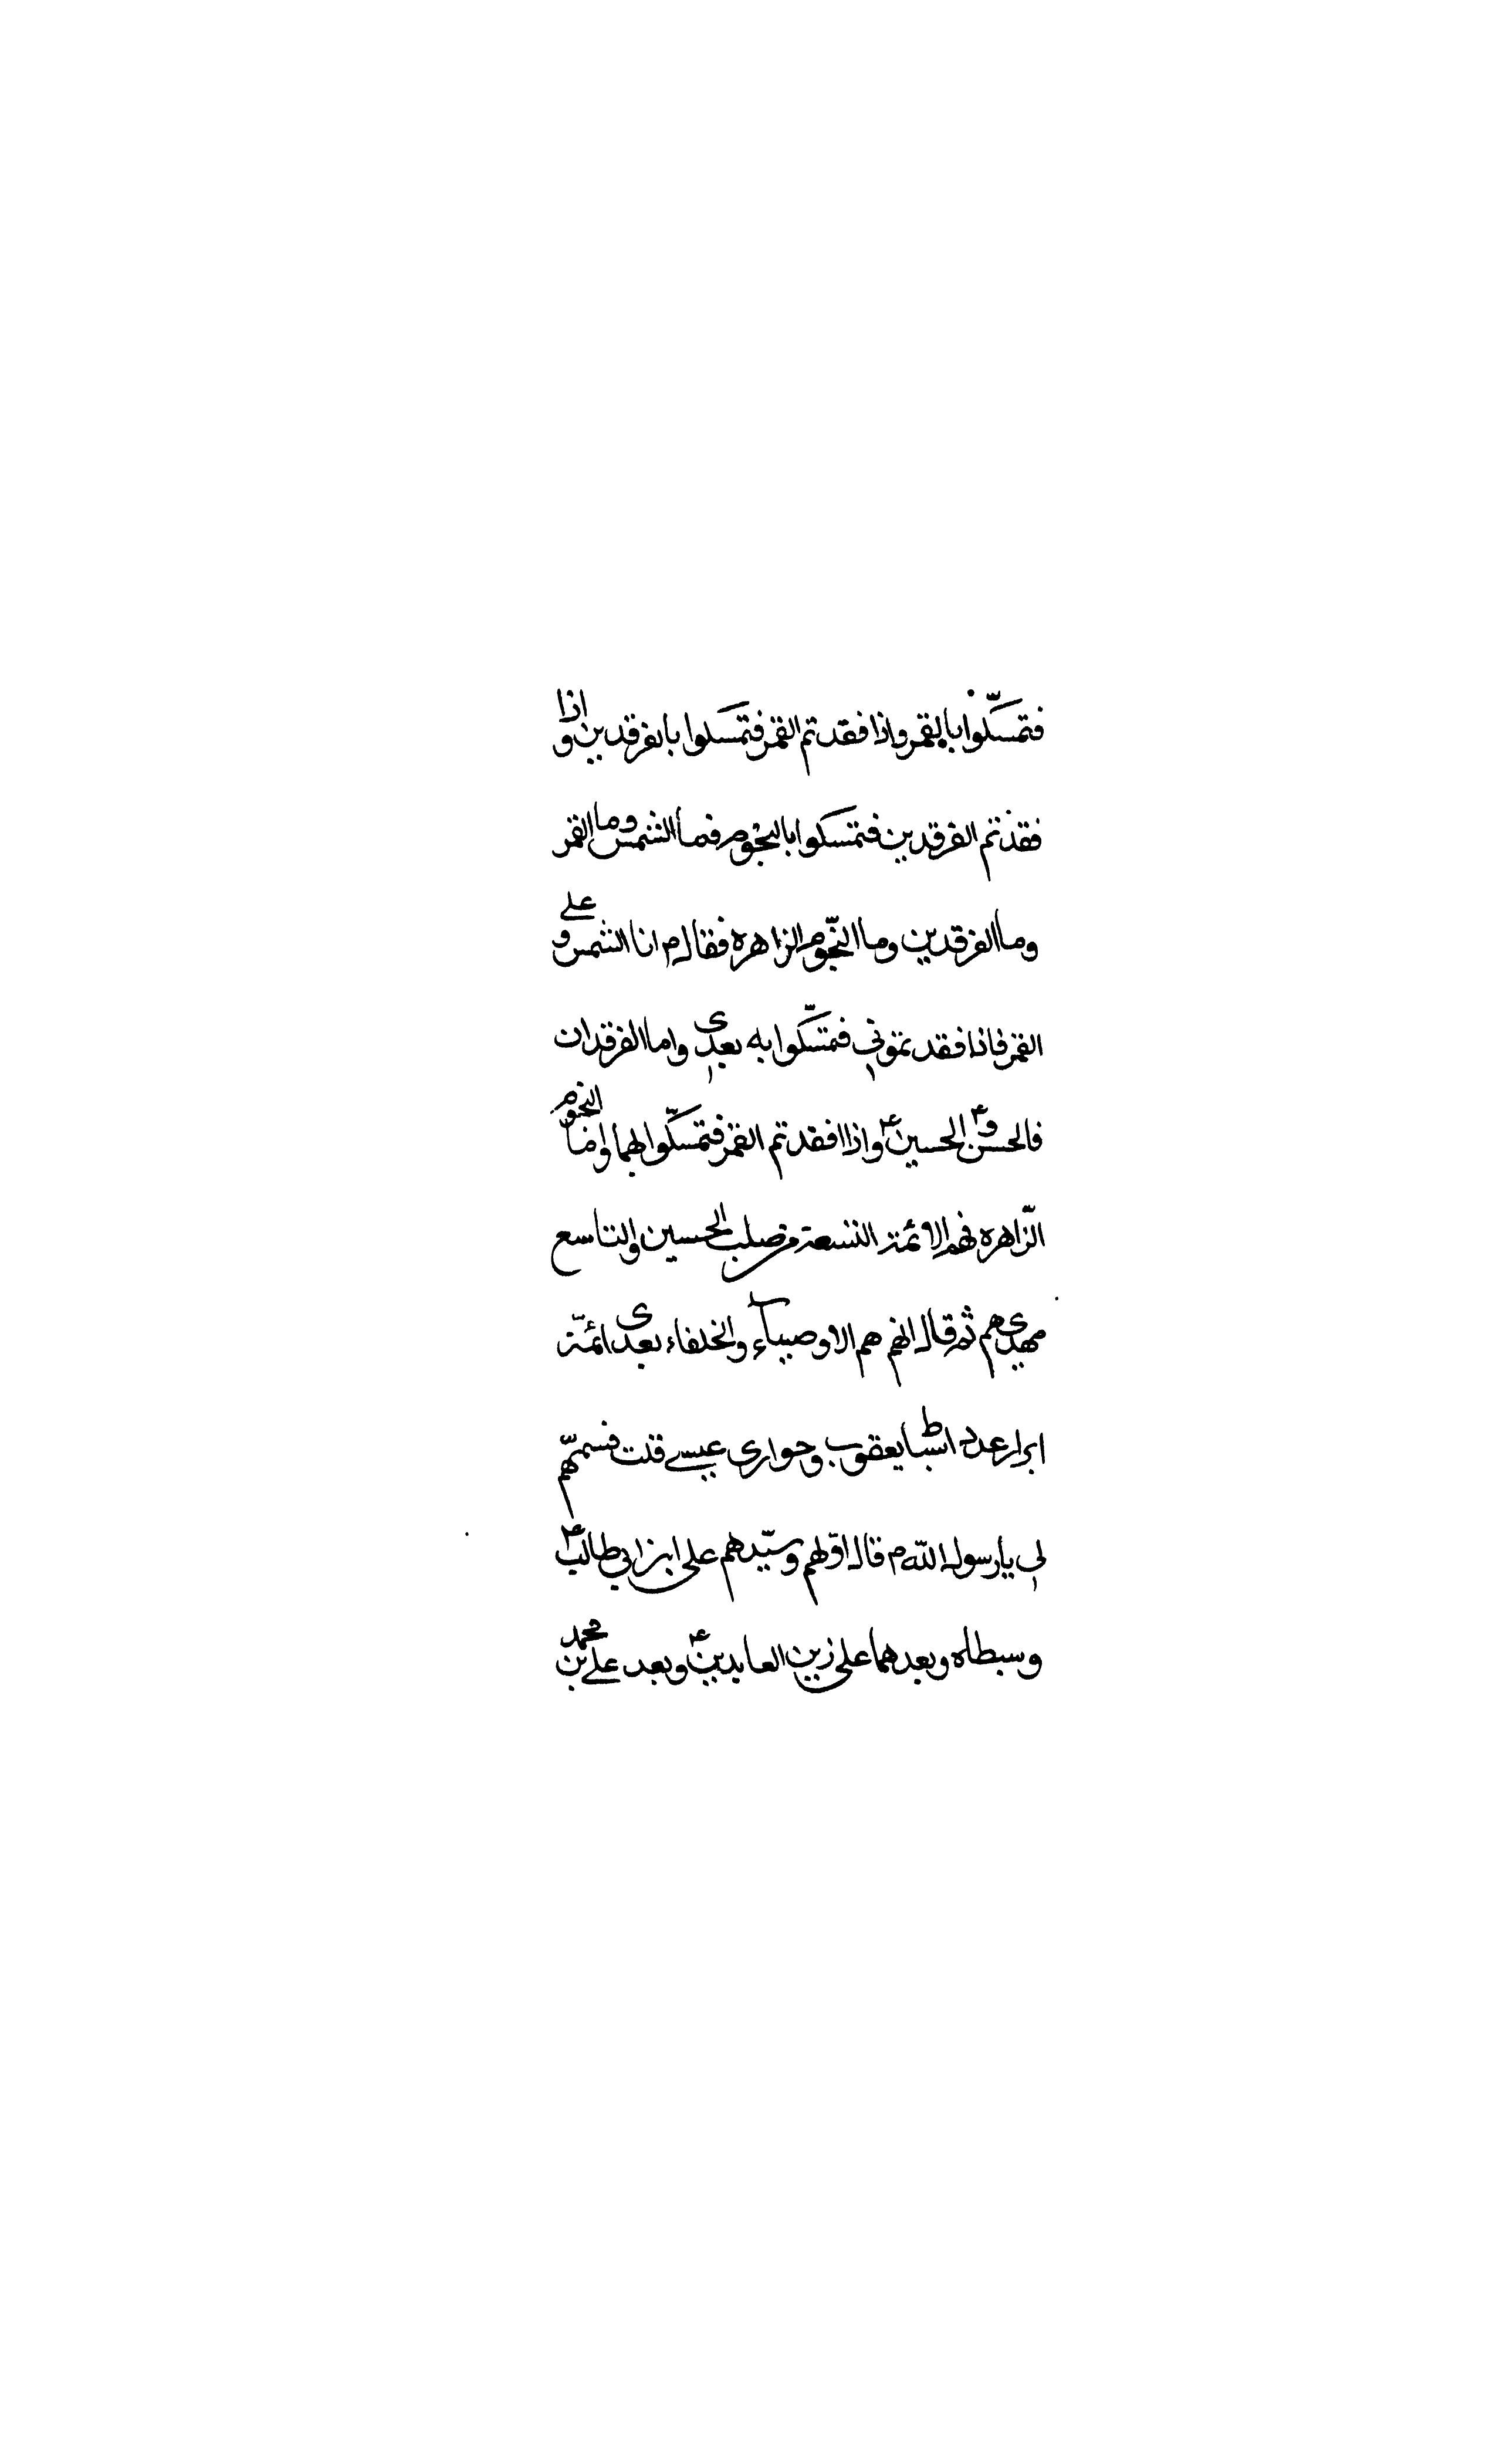 فتمسّكوا بالقمر واذا فقدتم القمر فتمسكوا بالفرقدين و اذا
فقدتم الفرقدين فتمسكوا بالنجوم فما الشمس وما القمر
وما الفرقدين وما النّجوم الزاهره فقال م انا الشمس و علي
القمر فاذا فقدتموني فتمسّكوا به بعدي واما الفرقدان
فالحسن ع و الحسين ع واذا افقدتم القمر فتمسّكوا بهما واما النجوم
الزّاهره فهم الائمة التسعة من صلب الحسين والتاسع
مهديهم ثم قال انهم هم الاوصياء والخلفاء بعدي ائمّة
ابرار عدد اسباط يعقوب وحواري عيسى قلت فسمّهم
لي يا رسول الله م قال اوّلهم وسيّدهم علي ابن ابي طالب ع
وسبطاه وبعدهما علي زين العابدين ع وبعد علي بن محمد